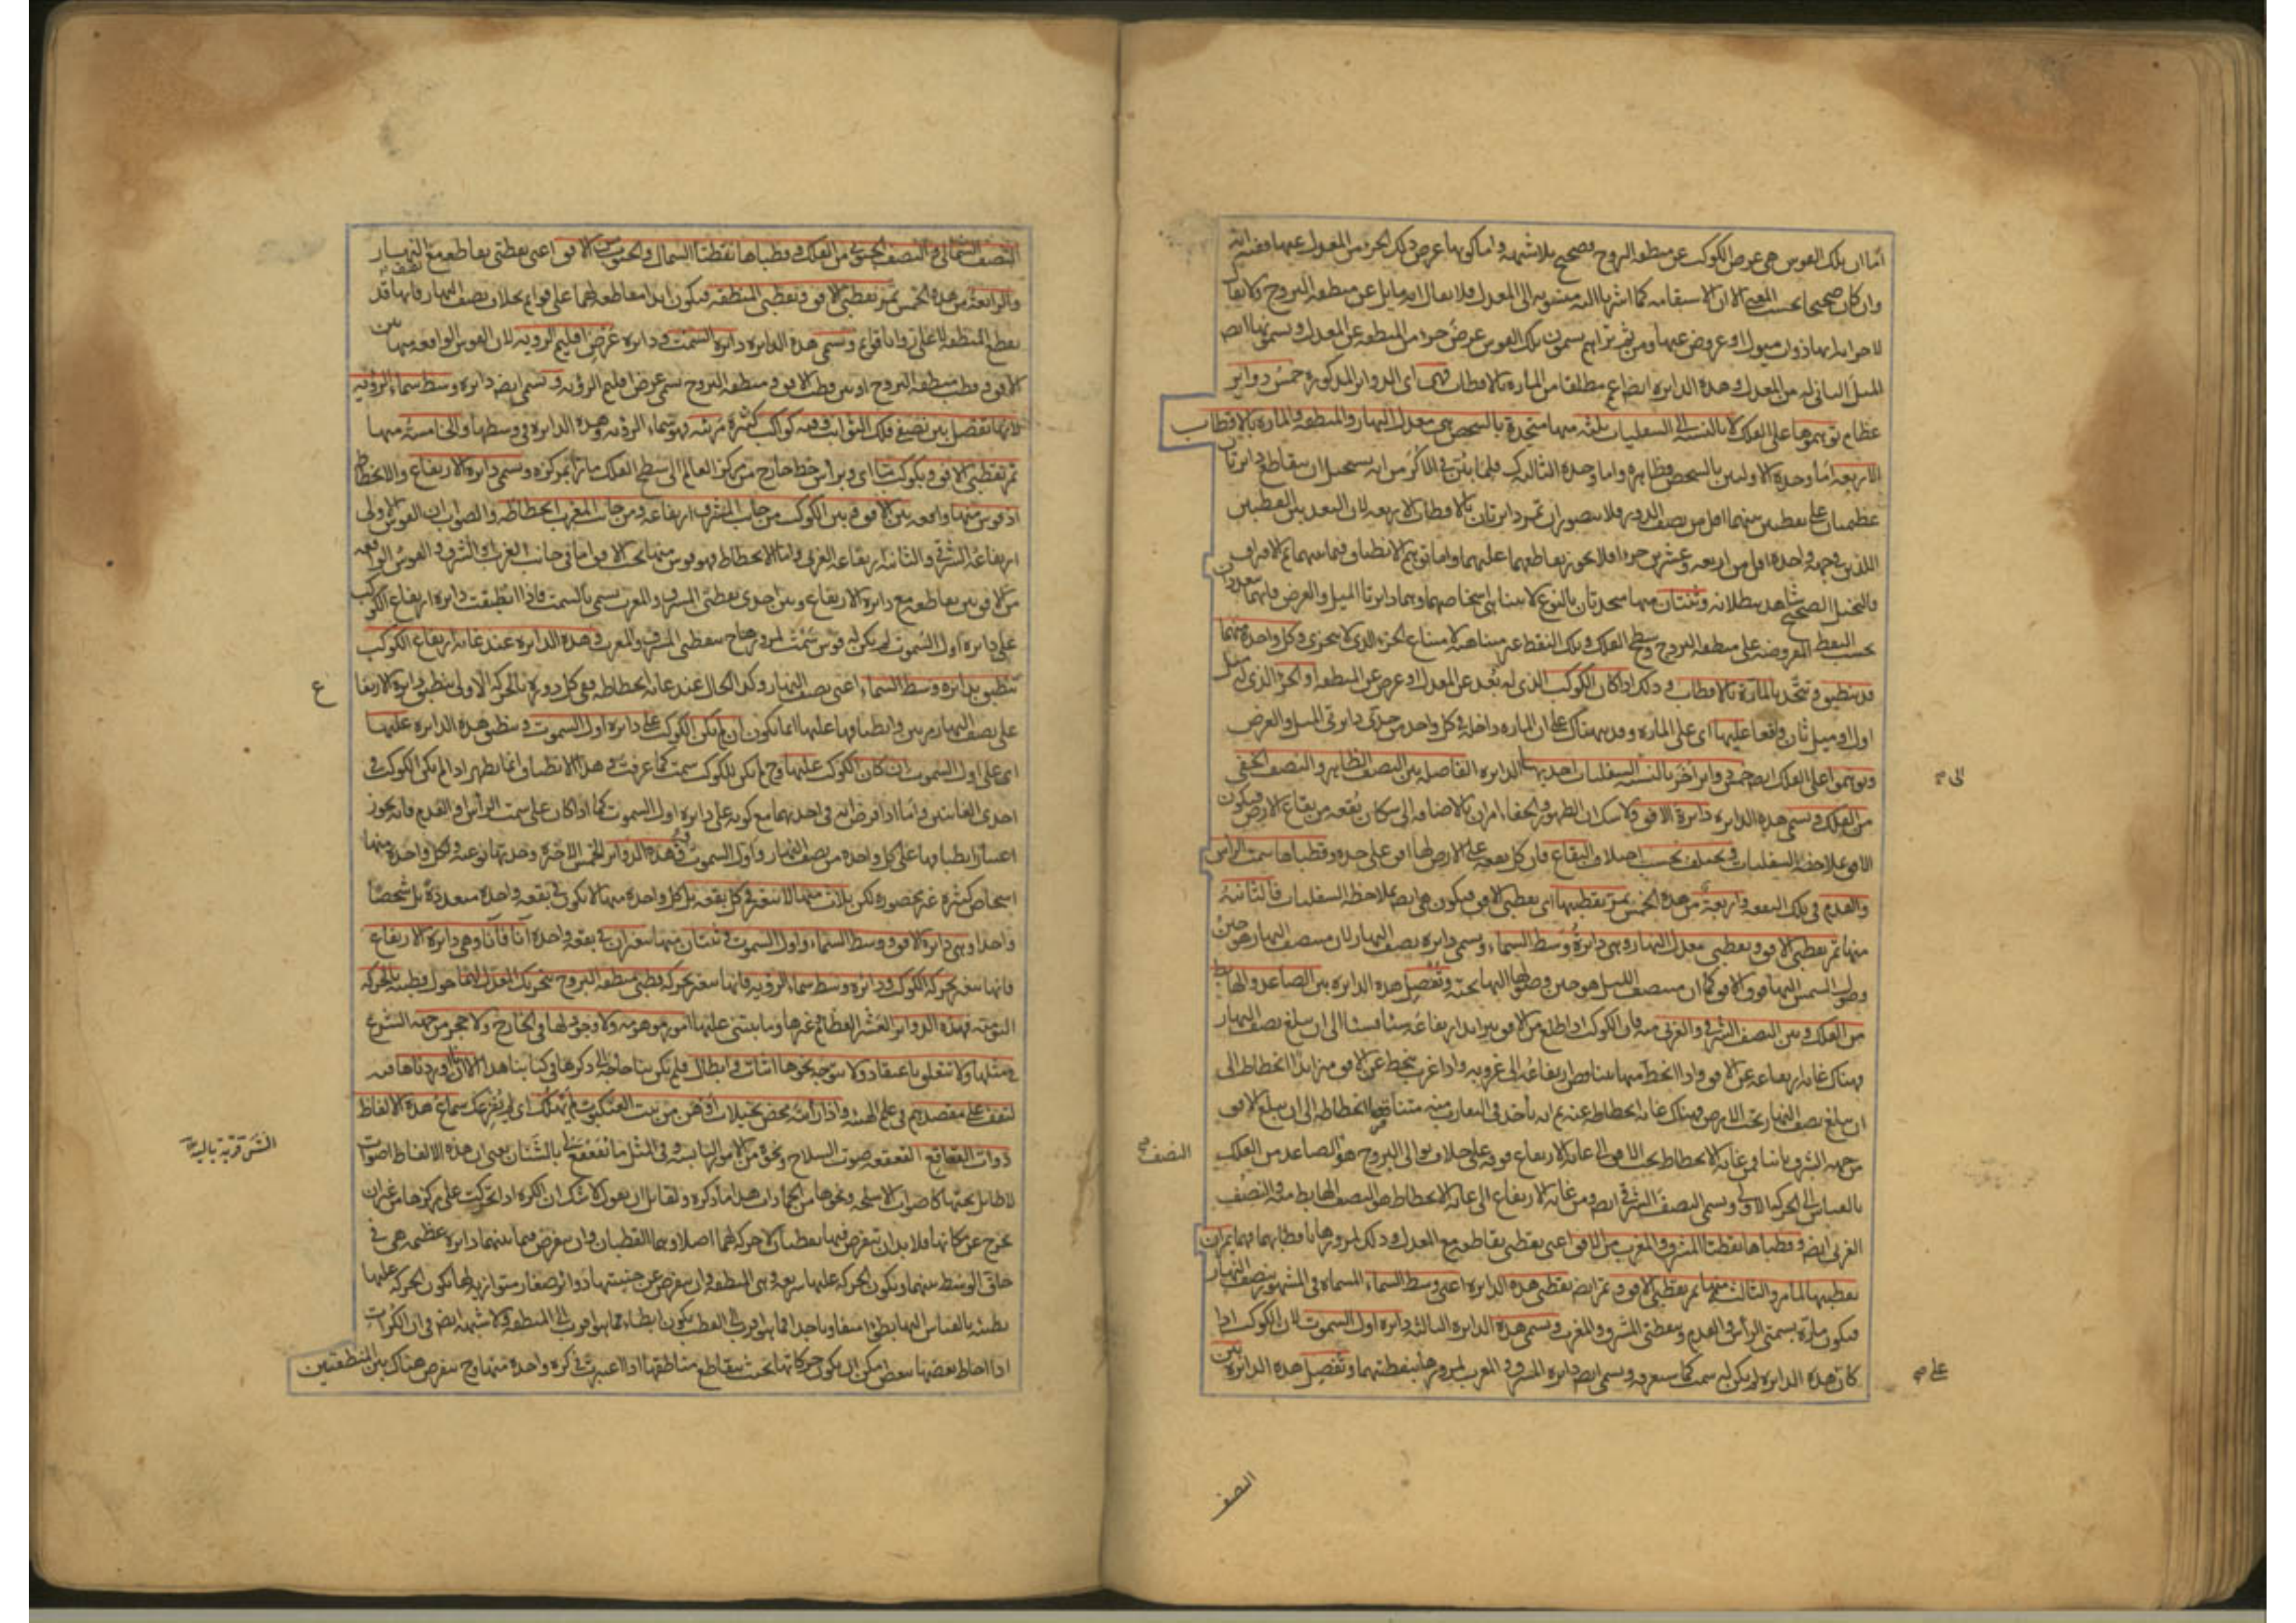 اما ان تلك القوس هى عرض الكوكب عن منطقه البروج فصحيح بلا شبهه واما كونها عرض ذلك الجزء من المعدل عنها ففيه انه
وان كان صحيحا بحسب المعنى الا ان الاستقامه
لاجزائه انها ذوات ميول او عروض عنها ومن ثم تراهم يسمون تلك القوس عرض جزء من المنطقه عن المعدل ويسمونها ايض
الميل الثانى له من المعدل وهذه الدايره ايضا اعم مطلقا من الماره بالاقطاب فهى اى الدواير المذكوره خمس دواير
عظام توهموها على الفلك لا بالنسبه الى السفليات ثلثه منها متحدة بالشخص هى معدل النهار والمنطقه والماره بالاقطاب
الاربعه اما وحدة الاوليين بالشخص فظاهره واما وحدة الثالثه فلما بين فى الاكر من انه يستحيل ان يتقاطع دايرتان
عظيمتان على نقطتين بينهما اقل من نصف الدور فلا يتصور ان تمر دايرتان بالاقطاب الاربعه لان البعد بين القطبين
اللذين فى جهه واحده اقل من اربعه وعشرين جزءا فلا يجوز تقاطعهما عليهما واما توهم الانطباق فيما بينهما ثم الافتراق
فالتخيل الصحيح شاهد ببطلانه وثنتان منها متحدتان بالنوع لا يتناهى اشخاصهما وهما دايرتا الميل والعرض فانهما تتعددان
بحسب النقط المفروضه على منطقه البروج وسطح الفلك وتلك النقط غير متناهيه لامتناع الجزء الذى لا يتجزى وكل واحدة منهما
قد تنطبق وتتحد بالمارة بالاقطاب وذلك اذا كان الكوكب الذى له بعد عن المعدل او عرض عن المنطقه او الجزء الذى له ميل
اول او ميل ثان واقعا عليها اى على الماره وقد نبهناك على ان الماره داخله فى كل واحد من حدى دايرتى الميل والعرض
وتوهموا على الفلك ايض خمس دواير اخر بالنسبه الى السفليات احديها الدايره الفاصله بين النصف الظاهر والنصف الخفى
من الفلك وتسمى هذه الدايره دايرة الافق ولا شك ان الظهور والخفاء امران بالاضافه الى سكان بقعه من بقاع الارض فيكون
الافق بملاحظه السفليات ويختلف بحسب اختلاف البقاع فان كل بقعه على الارض لها افق على حده وقطباها سمت الراس
والقدم فى تلك البقعه واربعة من هذه الخمس تمر بقطبيها اى بقطبى الافق فيكون هى ايض بملاحظه السفليات فالثانيه
منها تمر بقطبى الافق وبقطبى معدل النهار وهى دايرة وسط السماء وتسمى دايره نصف النهار لان منتصف النهار هو حين
وصول الشمس اليها فوق الافق كما ان منتصف الليل هو حين وصولها اليها تحته وتفصل هذه الدايره بين الصاعد والهابط
من الفلك وبين النصف الشرقى والغربى منه فان الكوكب اذا طلع من الافق يتزايد ارتفاعه شيئا فشيئا الى ان يبلغ نصف النهار
وهناك غايه ارتفاعه عن الافق واذا انحط منها يتناقص ارتفاعه الى غروبه واذا غرب ينحط عن الافق متزايدا انحطاطه الى
ان يبلغ نصف النهار تحت الارض وهناك غايه انحطاطه عنه ثم انه ياخذ فى التقارب منه متناقصا انحطاطه الى ان يبلغ الافق
من جهه الشرق ثانيا فمن غايه الانحطاط تحت الافق الى غايه الارتفاع فوقه على خلاف توالى البروج هو النصف الصاعد من الفلك
بالقياس الى الحركه الاولى ويسمى النصف الشرقى ايض ومن غايه الارتفاع الى غايه الانحطاط هو النصف الهابط منه والنصف
الغربى ايضا وقطباها نقطتا المشرق والمغرب من الافق اعنى نقطتى تقاطعه مع المعدل وذلك لمرورها باقطابهما فهما يمران
بقطبيها لما مر والثالثه منها تمر بقطبى الافق وتمر ايضا بقطبى هذه الدايره اعنى وسط السماء المسماه فى المشهور بنصف النهار
فيكون مارة بسمتى الرأس والقدم وبنقطتى المشرق والمغرب وتسمى هذه الدايره الثالثه دايره اول السموت لان الكوكب اذا
كان على هذه الدايره لم يكن له سمت كما ستعرفه وتسمى ايض دايره المشرق والمغرب لمرورها بنقطتيهما وتفصل هذه الدايرة بين
الى
النصف
على
النصف
النصف الشمالى والنصف الجنوبى من الفلك وقطباها نقطتا الشمال والجنوب من الافق اعنى نقطتى تقاطعه مع نصف النهار
والرابعة من هذه الخمس تمر بقطبى الافق وبقطبى المنطقه فيكون ابدا مقاطعه لهما على قوايم بخلاف نصف النهار فانها قد
تقطع المنطقه لا على زوايا قوايم وتسمى هذه الدايره دايره السمت ودايره عرض اقليم الرويه لان القوس الواقعه منها بين
الافق وقطب منطقه البروج او بين قطب الافق ومنطقه البروج تسمى عرض اقليم الرؤيه وتسمى ايض دايره وسط سماء الرؤيه
لانها تفصل بين نصفى فلك الثوابت وفيه كواكب كثيرة مرئيه فهو سماء الرؤيه وهذه الدايره فى وسطها والخامسة منها
تمر بقطبى الافق وبكوكب ما اى وبرأس خط خارج من مركز العالم الى سطح الفلك مارا بمركزه وتسمى دايرة الارتفاع والانحطاط
اذ قوس منها واقعه بين الافق وبين الكوكب من جانب المشرق ارتفاعه ومن جانب المغرب انحطاطه والصواب ان القوس الاولى
ارتفاعه الشرقى والثانيه ارتفاعه الغربى واما الانحطاط فهو قوس منها تحت الافق اما فى جانب الغرب او الشرق والقوس الواقعه
من الافق بين تقاطعه مع دايرة الارتفاع وبين احدى نقطتى المشرق والمغرب تسمى بالسمت فاذا انطبقت دايره ارتفاع الكوكب
على دايره اول السموت لم يكن له قوس سمت لمرورها ح بنقطتى المشرق والمغرب وهذه الدايره عند غايه ارتفاع الكوكب
تنطبق بدايره وسط السماء اعنى نصف النهار وكذا الحال عند غايه انحطاطه ففى كل دوره بالحركه الاولى ينطبق دايرة الارتفا
ع
على نصف النهار مرتين وانطباقها عليها انما يكون ان لم يكن الكوكب على دايره اول السموت وينطبق هذه الدايره عليها
اى على اول السموت ان كان الكوكب عليها وح لم يكن للكوكب سمت كما عرفت وهذا الانطباق انما يظهر اذا لم يكن الكوكب فى
احدى الغايتين واما اذا فرض انه فى احديهما مع كونه على دايره اول السموت كما اذا كان على سمت الرأس او القدم فانه يجوز
اعتبار انطباقها على كل واحده من نصف النهار واول السموت فهذه الدواير الخمس الاخيرة وحدتها نوعيه ولكل واحدة منها
اشخاص كثيره غير محصوره لكن ثلاث منها لا تتغير فى كل بقعه بل كل واحدة منها لا تكون فى بقعه واحدة متعددة بل شخصا
واحدا وهى دايره الافق ووسط السماء واول السموت وثنتان منها تتغيران فى بقعه واحدة آنا فآنا وهى دايره الارتفاع
فانها تتغير بحركه الكوكب ودائره وسط سماء الرؤيه فانها تتغير بحركه قطبى منطقه البروج بتحريك المعدل لهما حول قطبيه بالحركه
اليوميه فهذه الدواير العشر العظام غيرها وما يبتنى عليها امور موهومه ولا وجود لها فى الخارج ولا حجر من جهه الشرع
فى مثلها ولا تتعلق باعتقاد ولا يتوجه نحوها اثبات وابطال فلم يكن بنا حاجة الى ذكرها فى كتابنا هذا الا انا اوردناها فيه
لتقف على مقصدهم فى علم الهيئه واذا رأيته محض تخيلات اوهن من بيت العنكبوت لم يهلك اى لم يفزعك سماع هذه الالفاظ
ذوات القعاقع القعقعه صوت السلاح ونحوه من الامور اليابسه وفى المثل ما تقعقع لى بالشنان يعنى ان هذه الالفاظ اصوات
الشن قربة باليه
لا طايل تحتها كاصوات الاسلحه ونحوها من الجمادات هذا ما ذكره ولقائل ان يقول لا شك ان الكره اذا تحركت على مركزها من غير ان
تخرج عن مكانها فلا بد ان تفرض فيها نقطتان لا حركه لهما اصلا وهما القطبان وان يفرض فيما بينهما دايره عظيمه هى فى
حاق الوسط بينهما ويكون الحركه عليها سريعه وهى المنطقه وان يفرض عن جنبتيها دوائر صغار متوازيه لها تكون الحركه عليها
بطيئه بالقياس اليها بطؤا متفاوتا جدا فما هو اقرب الى القطب يكون ابطاء مما هو اقرب الى المنطقه ولا شبهه ايض فى ان الكرات
اذا احاط بعضها ببعض امكن ان يكون حركاتها بحيث يتقاطع مناطقها اذا اعتبرت فى كره واحدة منها وح يفرض هناك بين المنطقتين